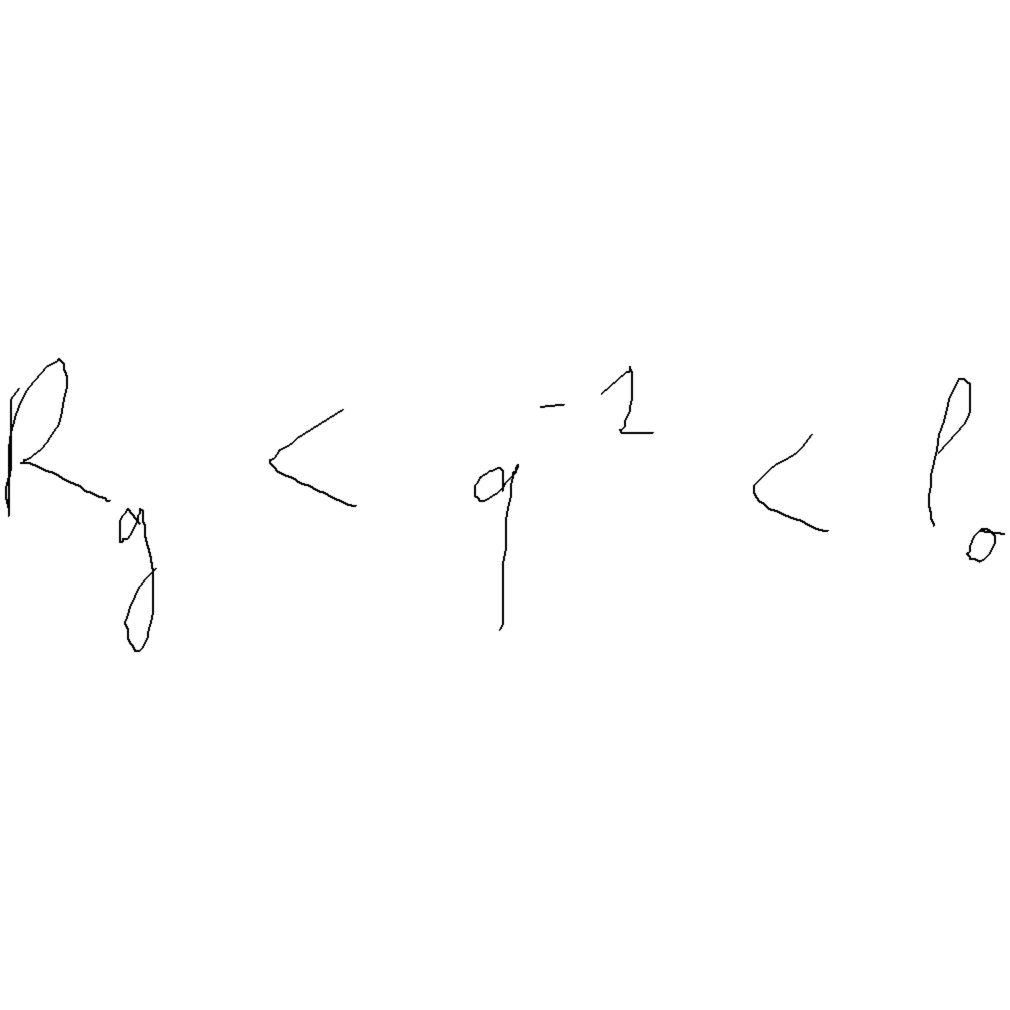 R_g < q^{-1} < l_0